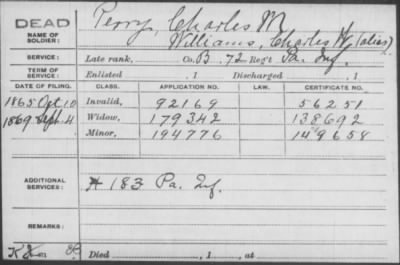 DEAD Perry, Charles M
NAME OF SOLDIER: Williams, Charles H, (alias)
SERVICE: Late rank, Co. B. 72 Reg't Pa. Inf.
TERM OF SERVICE: Enlisted , 1 Discharged , 1
DATE OF FILING. CLASS. APPLICATION NO. LAW. CERTIFICATE NO.
1865 Oct 10 Invalid, 92169 56251
1869 Sept. 4 Widow, 179342 138692
Minor, 194776 149658
ADDITIONAL SERVICES: 183 Pa. Inf.
REMARKS:
Died , 1 , at